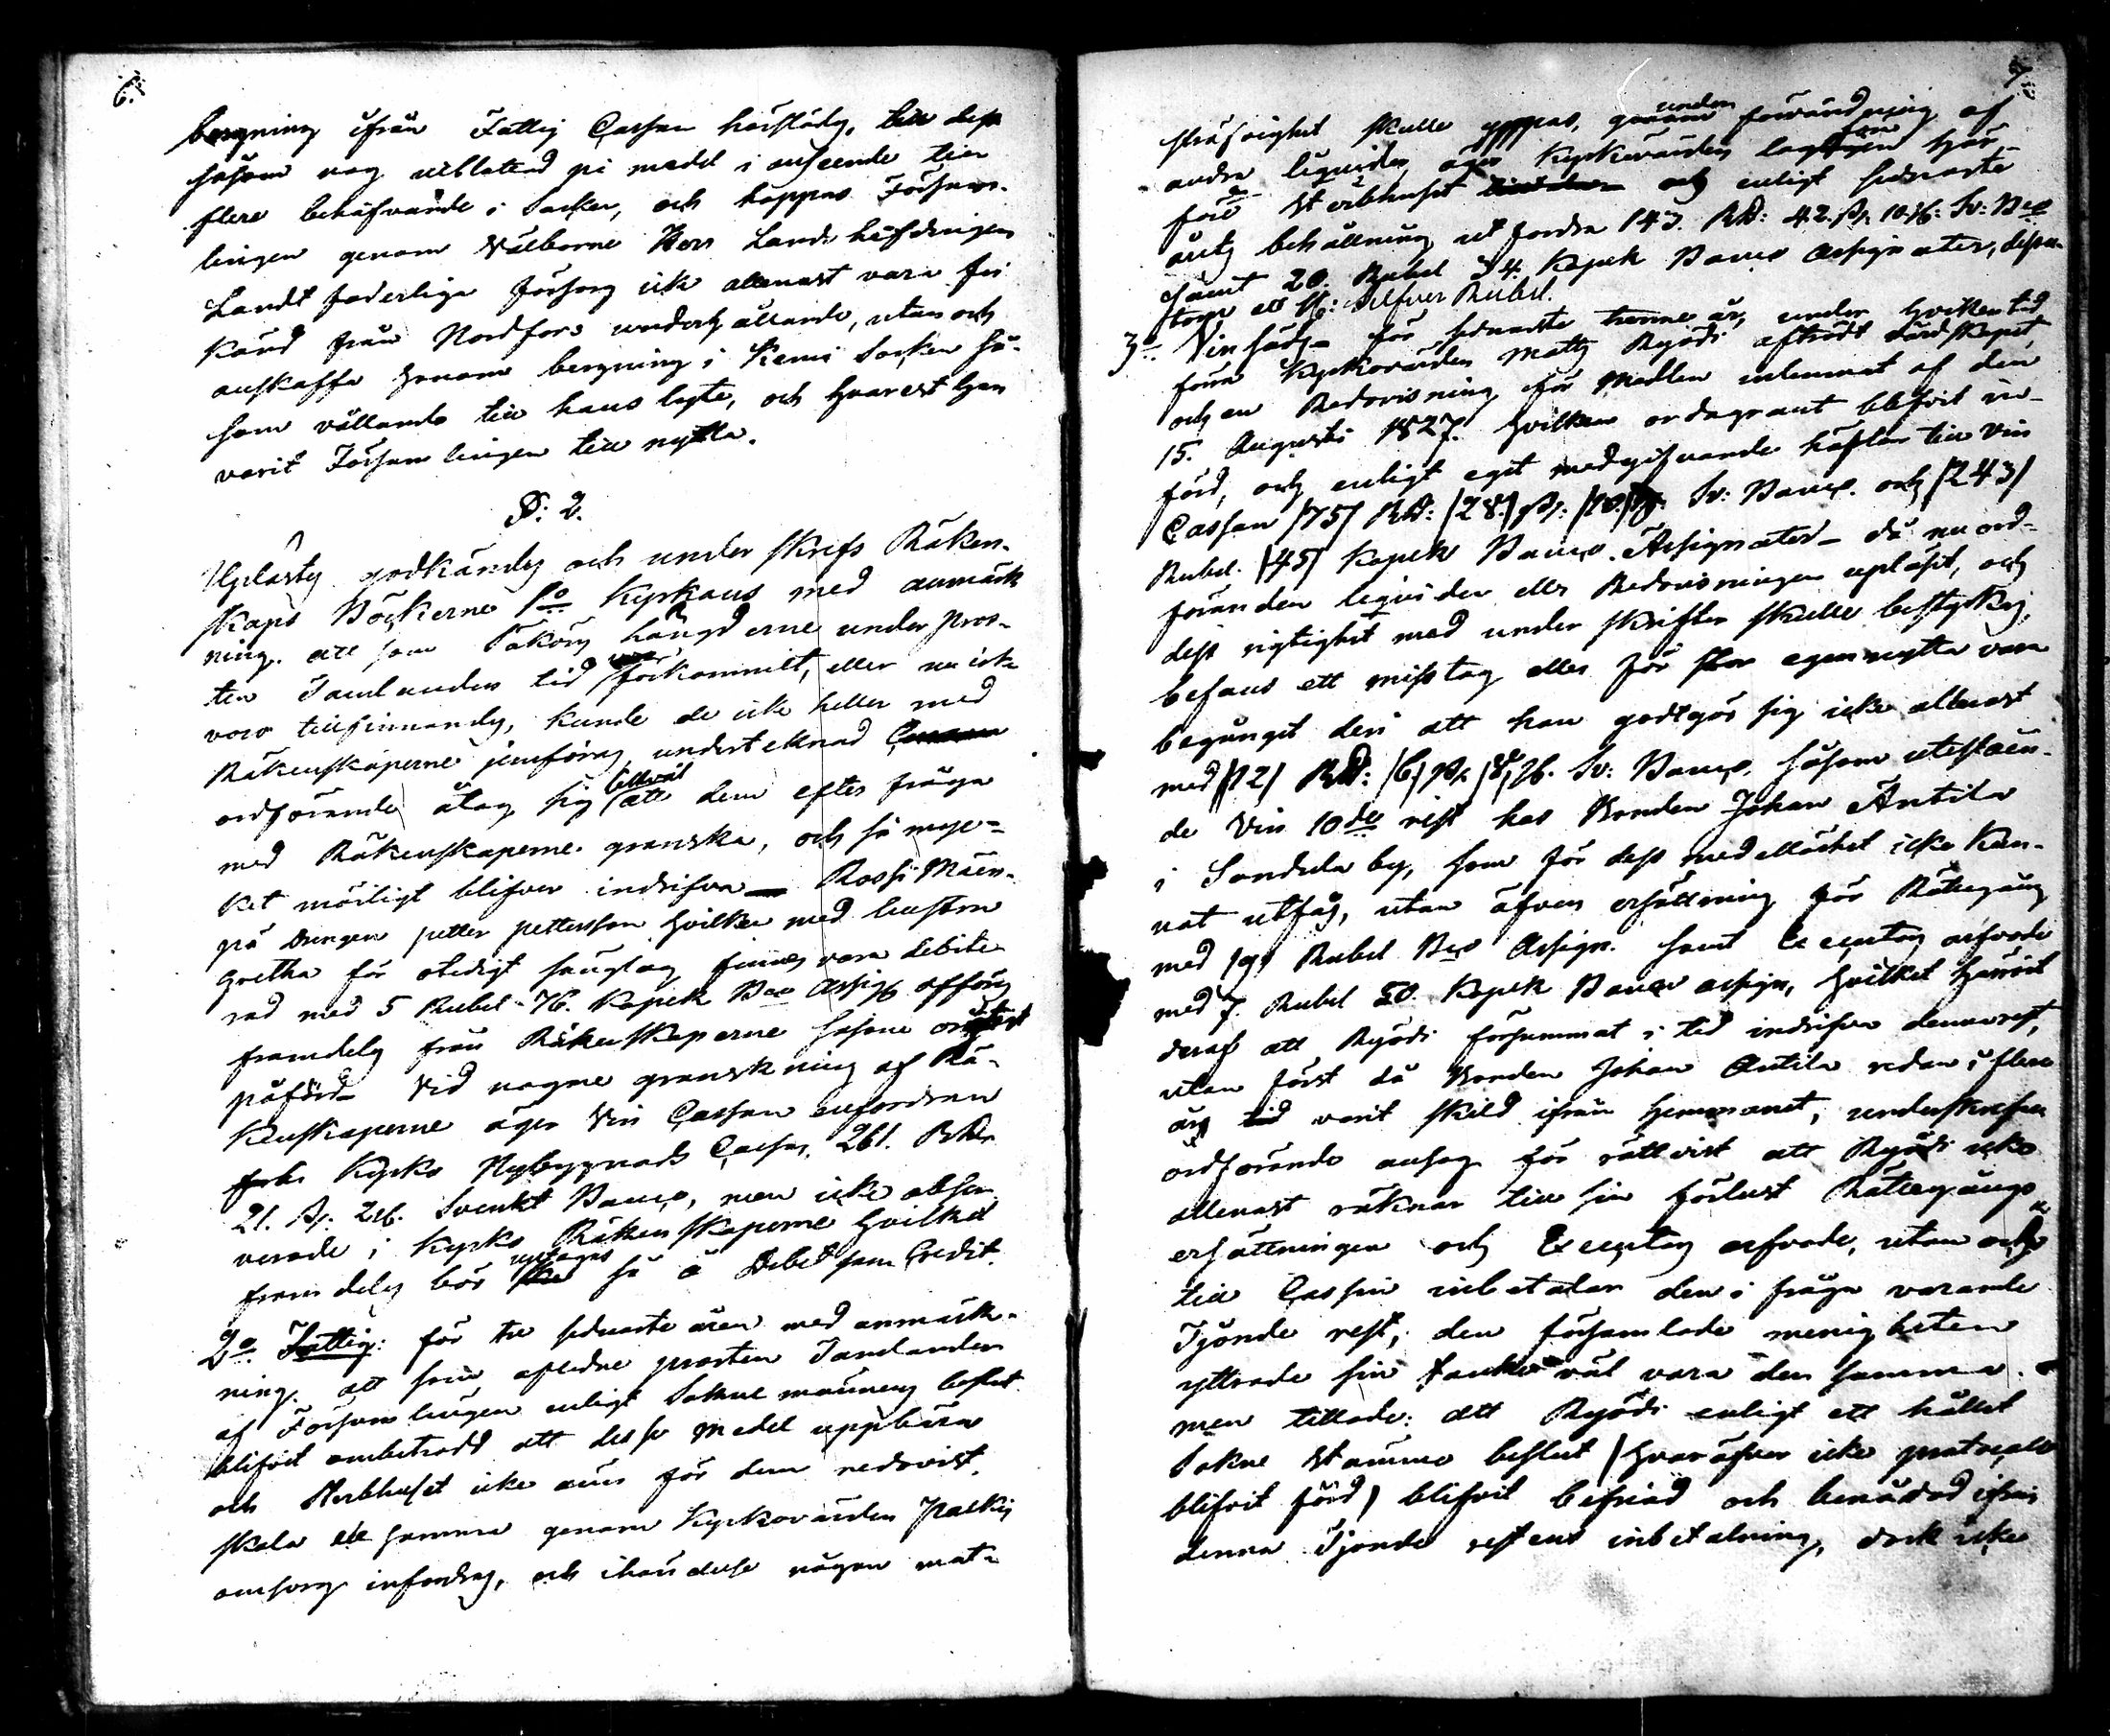 6.
bergning ifrån Fattig Cassan härstädes, till dess
såsom nog utblottad på medel i anseende till
flere behöfvande i Socken, och hoppas Försam-
lingen genom Välborne Herr Landshöfdingen
Landt faderliga försorg icke allenast vara fri
känd från Nordfors underhållande, utan och
anskaffa honom bergning i Kemi Socken så-
som vållande till hans lyte, och hvarest han
varit Församlingen till nytta.
§: 2.
Uplästes godkändes och underskrefs Räken-
skaps Böckerne 1o Kyrkans med anmärk
ning. att som Tiokörs längderne under pros-
ten Tamlanders tid förkommit, eller nu icke
voro tillfinnandes, kunde de icke heller med
Räkenskaperne jemföras, underteknad
ordförande åtog sig likväl att dem efter fråga
med Räkenskaperne granska, och så myc-
ket möiligt blifver indrifva Rossi Mäen-
pä Drengen petter pettersson hvilken med hustru
Gretha för otidigt sänglag finnes vara debite
rad med 5 Rubel 76. Kopek Bco Assig afföres
framdeles från Räkenskaperne såsom orätt
påförd Vid nogare granskning af Rä-
kenskaperne äger Vin Cassan anfordran
från Kyrko Nybyggnads Cassan, 261. RD
21. s: 2 rf. Svenskt Banco, men icke obser
verade i Kyrko Räkenskaperne hvilket
framdeles bör uptagas så å Debet som Credit.
2o Fattig: för tre sednaste åren med anmärk-
ning. att som aflidne prosten Tamlander
af Församlingen enligt Sokne männens beslut
blifvit ombetrodd att desse medel uppbära
och Sterbhuset icke änu för dem redovist,
skola de samma genom Kyrkovärden Paakis
omsorg infordras, och ihändelse någon mot-
7.
sträfvighet skulle yppas, under förvändning af
andra liquider, äger Kyrkovärden lagsam hjer
före Sterbhuset och enligt sednaste
årets behållning ut fordra 143. RD: 42. s: 10 rf: Sv: Bco
samt 20. Rubel 34. Kopek Banco Assignater, dessu-
tom ett st: Silfver Rubel.
3o Vinsäds för sednaste trenne år, under hvilken tid
förra Kyrkovärden Matts Ryödi afträdt vårdskapet,
och en Redovisning för Medlen inlemnat af den
15. Augusti 1827. hvilken ordagrant blifvit in-
förd, och enligt eget medgifvande häftar till Vin
Cassan /75/ RD: /28./ s: /10./ rf. Sv: Banco. och /243/
Rubel. /45/ Kopek Banco. Assignater - då nu ord-
föranden liquiden eller Redovisningen upläst, och
dess rigtighet med under skrifter skulle bestyrkas,
befans ett misstag eller för stor egennytta vara
begånget deri att han godtgör sig icke allenast
med /12/ RD: /6/ s: /8/ rf. Sv: Banco. såsom uteståen-
de Vin 10de rest hos Bonden Johan Äntila
i Sondula by, som för dess medellöshet icke kun-
nat utfås, utan äfven ersättning för Rättegång
med /9/ Rubel Bco Assign. samt Executors arfvode
med 7. Rubel 50. Kopek Banco assign, hvilket härrört
deraf att Ryödi försummat i tid indrifva denna rest,
utan först då Bonden Johan Äntila redan i flere
års tid varit skild ifrån hemmanet, underskrefne
ordförande ansåg för rättvist att Ryödi icke
allenast räknar till sin förlust Rättegångs
ersättningen och Executors arfvode, utan och
till Cassan inbetalar den i fråga varande
Tjonde rest, den församlade menigheten
yttrade sin tanke väl vara den samma.
men tillade: att Ryödi enligt ett hållet
Sokne Stämmo beslut /hvaröfver icke protocoll
blifvit förd/ blifvit befriad och benådad ifrån
denna Tjonde restens inbetalning, dock icke